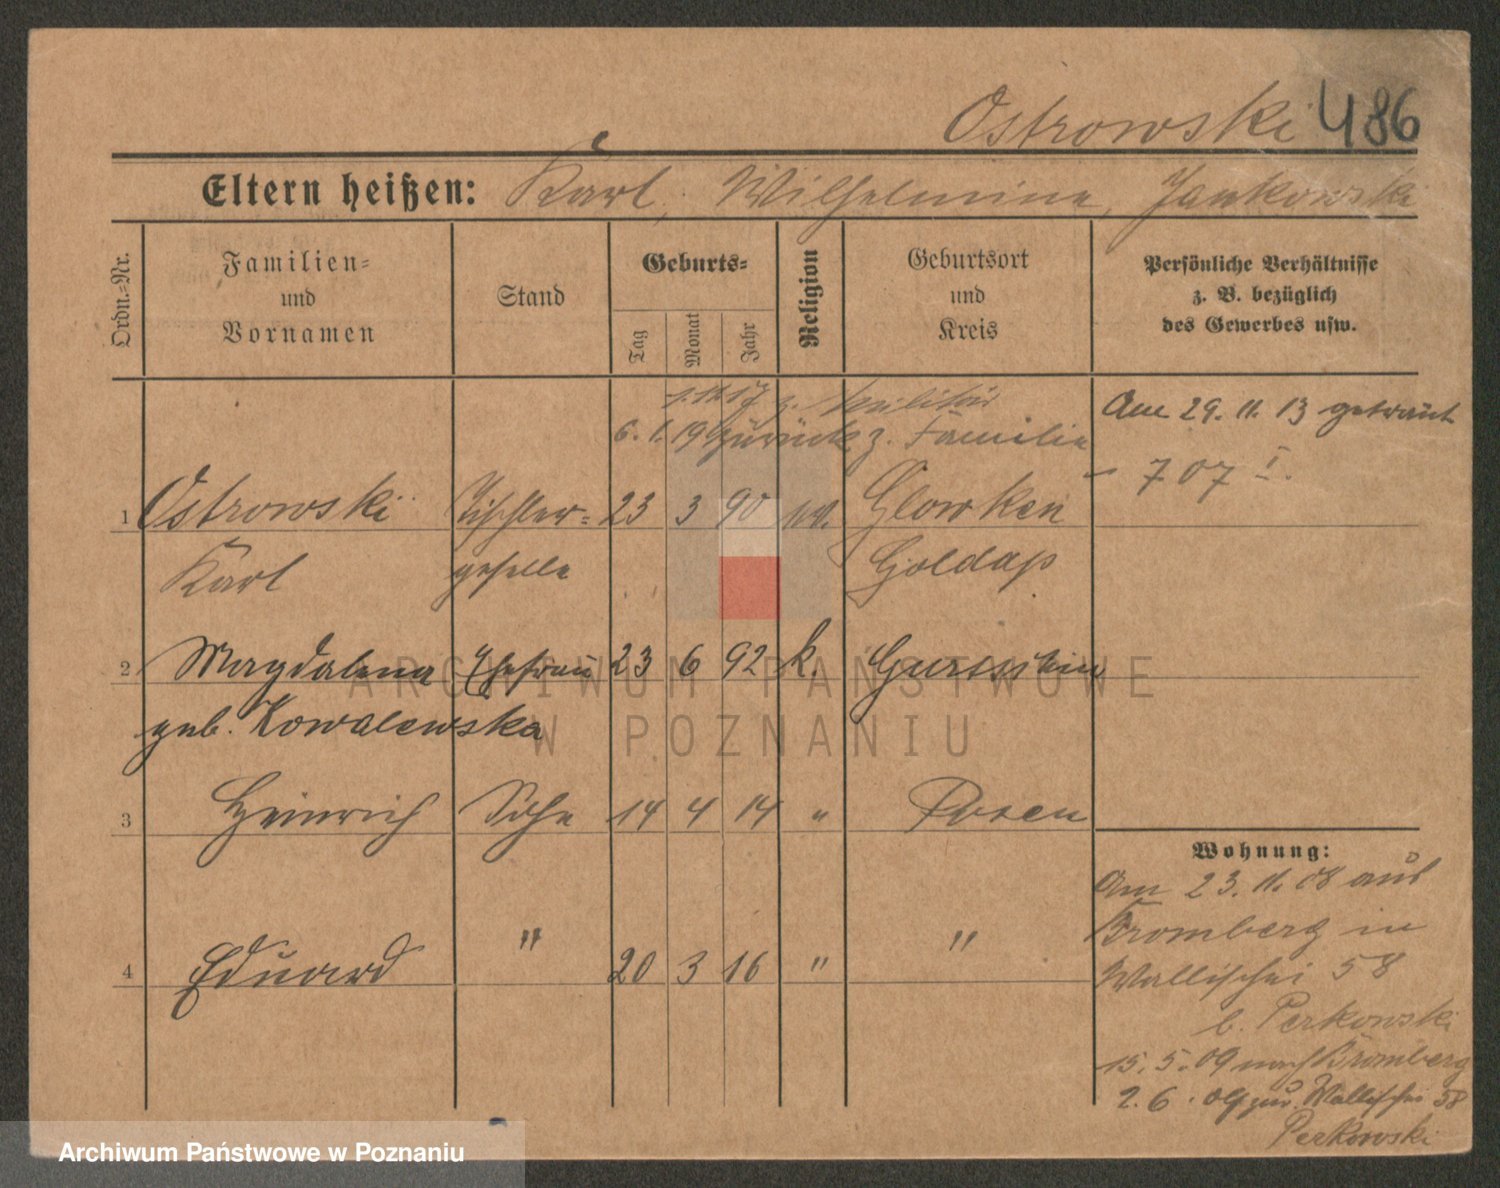 Ostrowski 486
Eltern heißen: Karl, Wilhelmine, Jankowski
Ordn.-Nr.
Familien- und Vornamen
Stand
Geburts-
Tag
Monat
Jahr
Religion
Geburtsort und Kreis
Persönliche Verhältnisse
z. B. bezüglich
des Gewerbes usw.
1.12.17 z. Militär
6. 1. 19 zurück z. Familie
Am 29. 11. 13 getraut
- 707 I.
1 Ostrowski Tischler- 23 3 90 Glowken
Karl geselle Goldap
2 Magdalena Ehefrau 23 6 92 k.
geb. Kowalewska
3 Heinrich Sohn 14 4 14 " Posen
4 Eduard " 20 3 16 " "
Wohnung:
Am 23. 11. 08 aus
Bromberg in
Wallischei 58
b. Perkowski
15. 5. 09 nach Bromberg
2. 6. 09 zur. Wallischei 58
Perkowski
ARCHIWUM PAŃSTWOWE
W POZNANIU
Archiwum Państwowe w Poznaniu